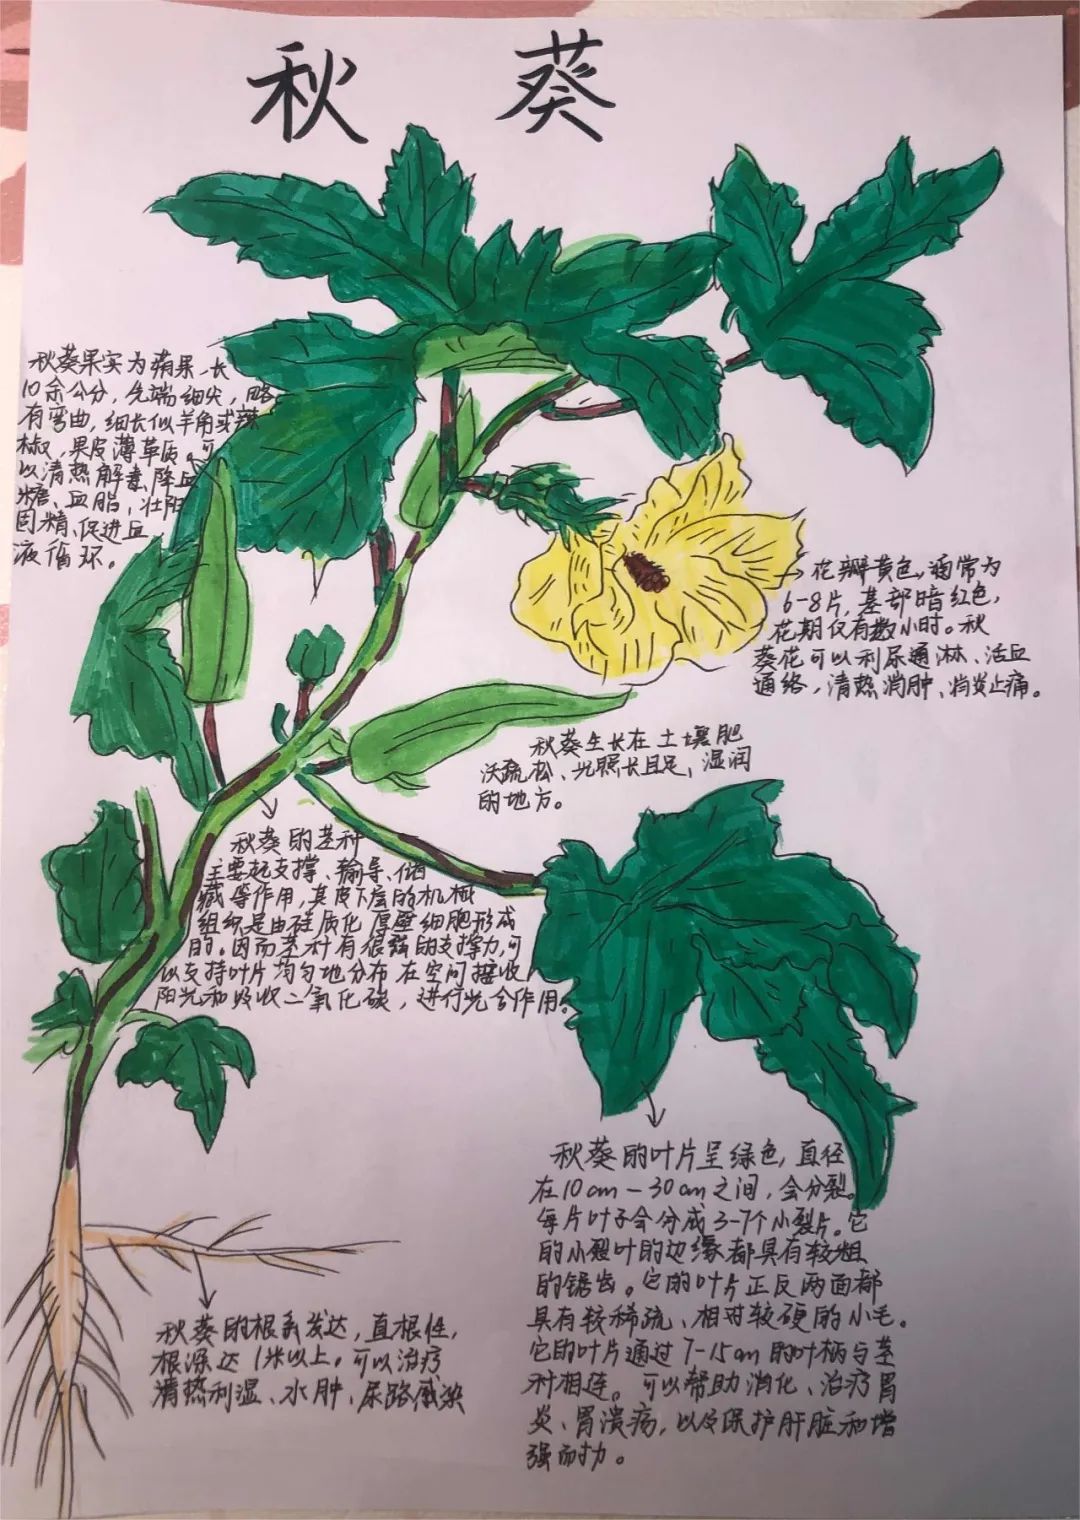 秋葵
秋葵果实为蒴果，长
10余公分，先端细尖，略
有弯曲，细长似羊角或辣
椒，果皮薄革质。可
以清热解毒、降血
糖、血脂，壮阳
固精、促进血
液循环。
花瓣黄色，通常为
6-8片，基部暗红色，
花期仅有数小时。秋
葵花可以利尿通淋、活血
通络，清热消肿、消炎止痛。
秋葵生长在土壤肥
沃疏松、光照长且足，湿润
的地方。
秋葵的茎秆
主要起支撑、输导、储
藏等作用，其皮下层的机械
组织是由硅质化厚壁细胞形成
的。因而茎秆有很强的支撑力，可
以支持叶片均匀地分布在空间接收
阳光和吸收二氧化碳，进行光合作用。
秋葵的叶片呈绿色，直径
在10cm-30cm之间，会分裂。
每片叶子会分成3-7个小裂片。它
的小裂叶的边缘都具有较粗
的锯齿。它的叶片正反两面都
具有较稀疏、相对较硬的小毛。
它的叶片通过7-15cm的叶柄与茎
秆相连。可以帮助消化、治疗胃
炎、胃溃疡，以及保护肝脏和增
强耐力。
秋葵的根系发达，直根性，
根深达1米以上。可以治疗
清热利湿、水肿、尿路感染